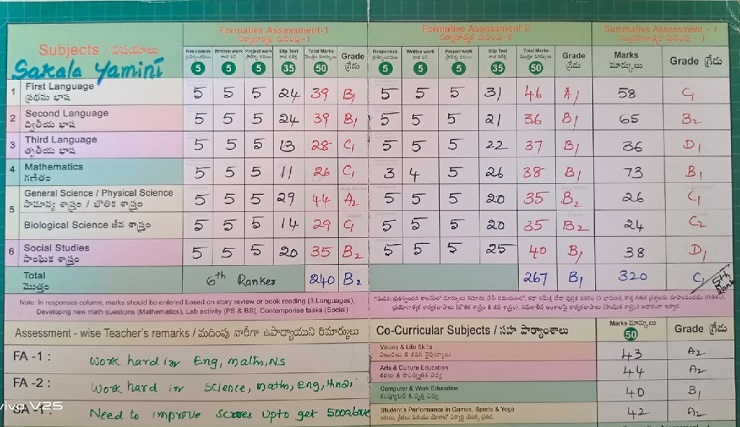 Formative Assessment-1 Formative Assessment-2 Summative Assessment - 1
నిర్మాణాత్మక మదింపు -1 నిర్మాణాత్మక మదింపు -2
Subjects / విషయాలు Responses Written work Project work Slip Test Total Marks Grade Responses Written work Project work Slip Test Total Marks Grade Marks Grade గ్రేడు
Sakala Yamini 5 5 5 35 50 గ్రేడు 5 5 5 35 50 గ్రేడు మార్కులు
1 First Language 5 5 5 24 39 B1 5 5 5 31 46 A1 58 C1
ప్రథమ భాష
2 Second Language 5 5 5 24 39 B1 5 5 5 21 36 B1 65 B2
ద్వితీయ భాష
3 Third Language 5 5 5 13 28 C1 5 5 5 22 37 B1 36 D1
తృతీయ భాష
4 Mathematics 5 5 5 11 26 C1 3 4 5 26 38 B1 73 B1
గణితం
5 General Science / Physical Science 5 5 5 29 44 A2 5 5 5 20 35 B2 26 C1
సామాన్య శాస్త్రం / భౌతిక శాస్త్రం
Biological Science జీవ శాస్త్రం 5 5 5 14 29 C1 5 5 5 20 35 B2 24 C2
6 Social Studies 5 5 5 20 35 B2 5 5 5 25 40 B1 38 D1
సాంఘిక శాస్త్రం
Total 6th Ranker 240 B2 267 B1 320 C1
మొత్తం
Note: In responses column, marks should be entered based on story review or book reading (3 Languages),
Developing new math questions (Mathematics), Lab activity (PS & BS), Contemporise tasks (Social)
Assessment - wise Teacher's remarks / మదింపు వారీగా ఉపాధ్యాయుని రిమార్కులు
FA -1 : Work hard in Eng, maths, NS
FA -2 : Work hard in Science, maths, Eng, Hindi
SA -1 : Need to improve scores upto get 500 above
Co-Curricular Subjects / సహ పాఠ్యాంశాలు Marks మార్కులు 50 Grade గ్రేడు
Values & Life Skills 43 A2
Arts & Culture Education 44 A2
Computer & Work Education 40 B1
Student's Performance in Games, Sports & Yoga 42 A2
vivo V25